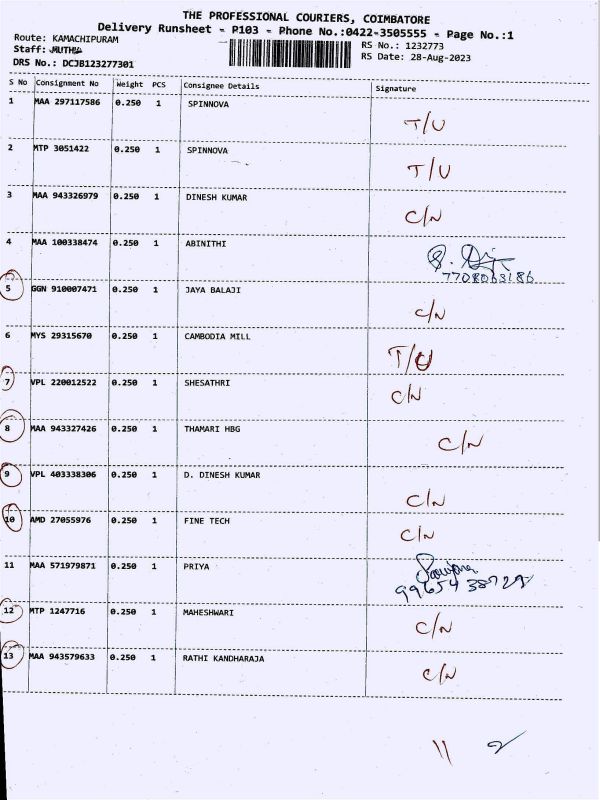 THE PROFESSIONAL COURIERS, COIMBATORE
Delivery Runsheet - P103 - Phone No.:0422-3505555 - Page No.:1
Route: KAMACHIPURAM
RS No.: 1232773
Staff: MUTHU
RS Date: 28-Aug-2023
DRS No.: DCJB123277301
S No Consignment No Weight PCS Consignee Details Signature
1 MAA 297117586 0.250 1 SPINNOVA
T/U
2 MTP 3051422 0.250 1 SPINNOVA
T/U
3 MAA 943326979 0.250 1 DINESH KUMAR
C/N
4 MAA 100338474 0.250 1 ABINITHI
7708063186
5 GGN 910007471 0.250 1 JAYA BALAJI
C/N
6 MYS 29315670 0.250 1 CAMBODIA MILL
T/U
7 VPL 220012522 0.250 1 SHESATHRI
C/N
8 MAA 943327426 0.250 1 THAMARI HBG
C/N
9 VPL 403338306 0.250 1 D. DINESH KUMAR
C/N
10 AMD 27055976 0.250 1 FINE TECH
C/N
11 MAA 571979871 0.250 1 PRIYA
12 MTP 1247716 0.250 1 MAHESHWARI
C/N
13 MAA 943579633 0.250 1 RATHI KANDHARAJA
C/N
11 2